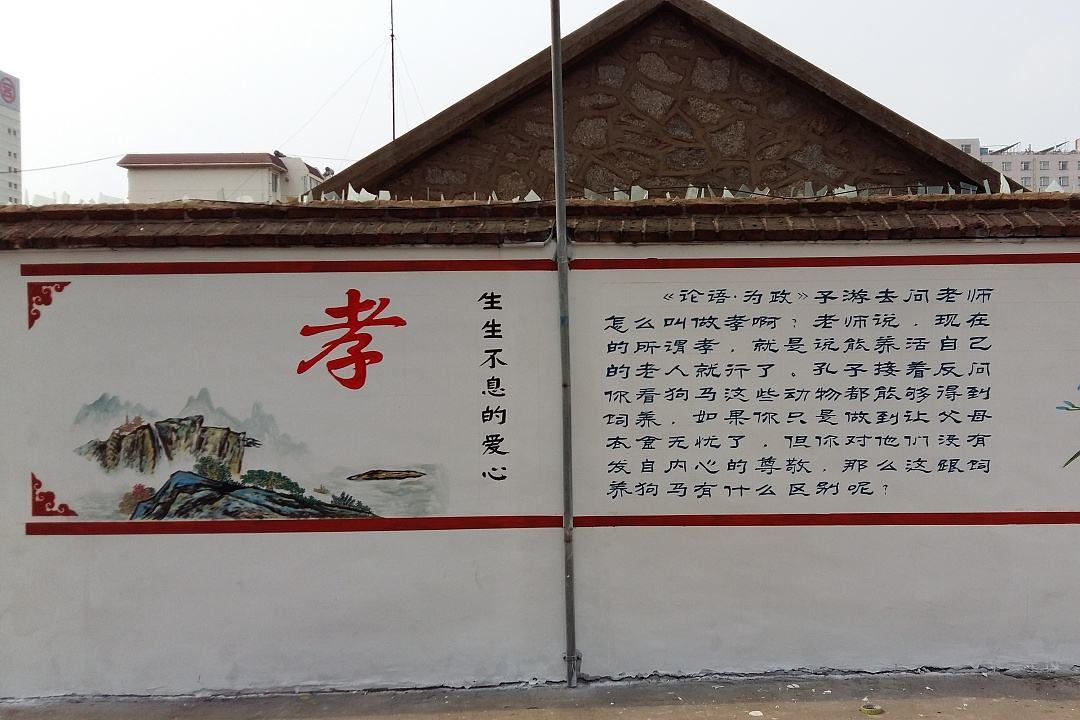 孝
生生不息的爱心
《论语·为政》子游去问老师
怎么叫做孝啊?老师说,现在
的所谓孝,就是说能养活自己
的老人就行了。孔子接着反问
你看狗马这些动物都能够得到
饲养,如果你只是做到让父母
衣食无忧了,但你对他们没有
发自内心的尊敬,那么这跟饲
养狗马有什么区别呢?